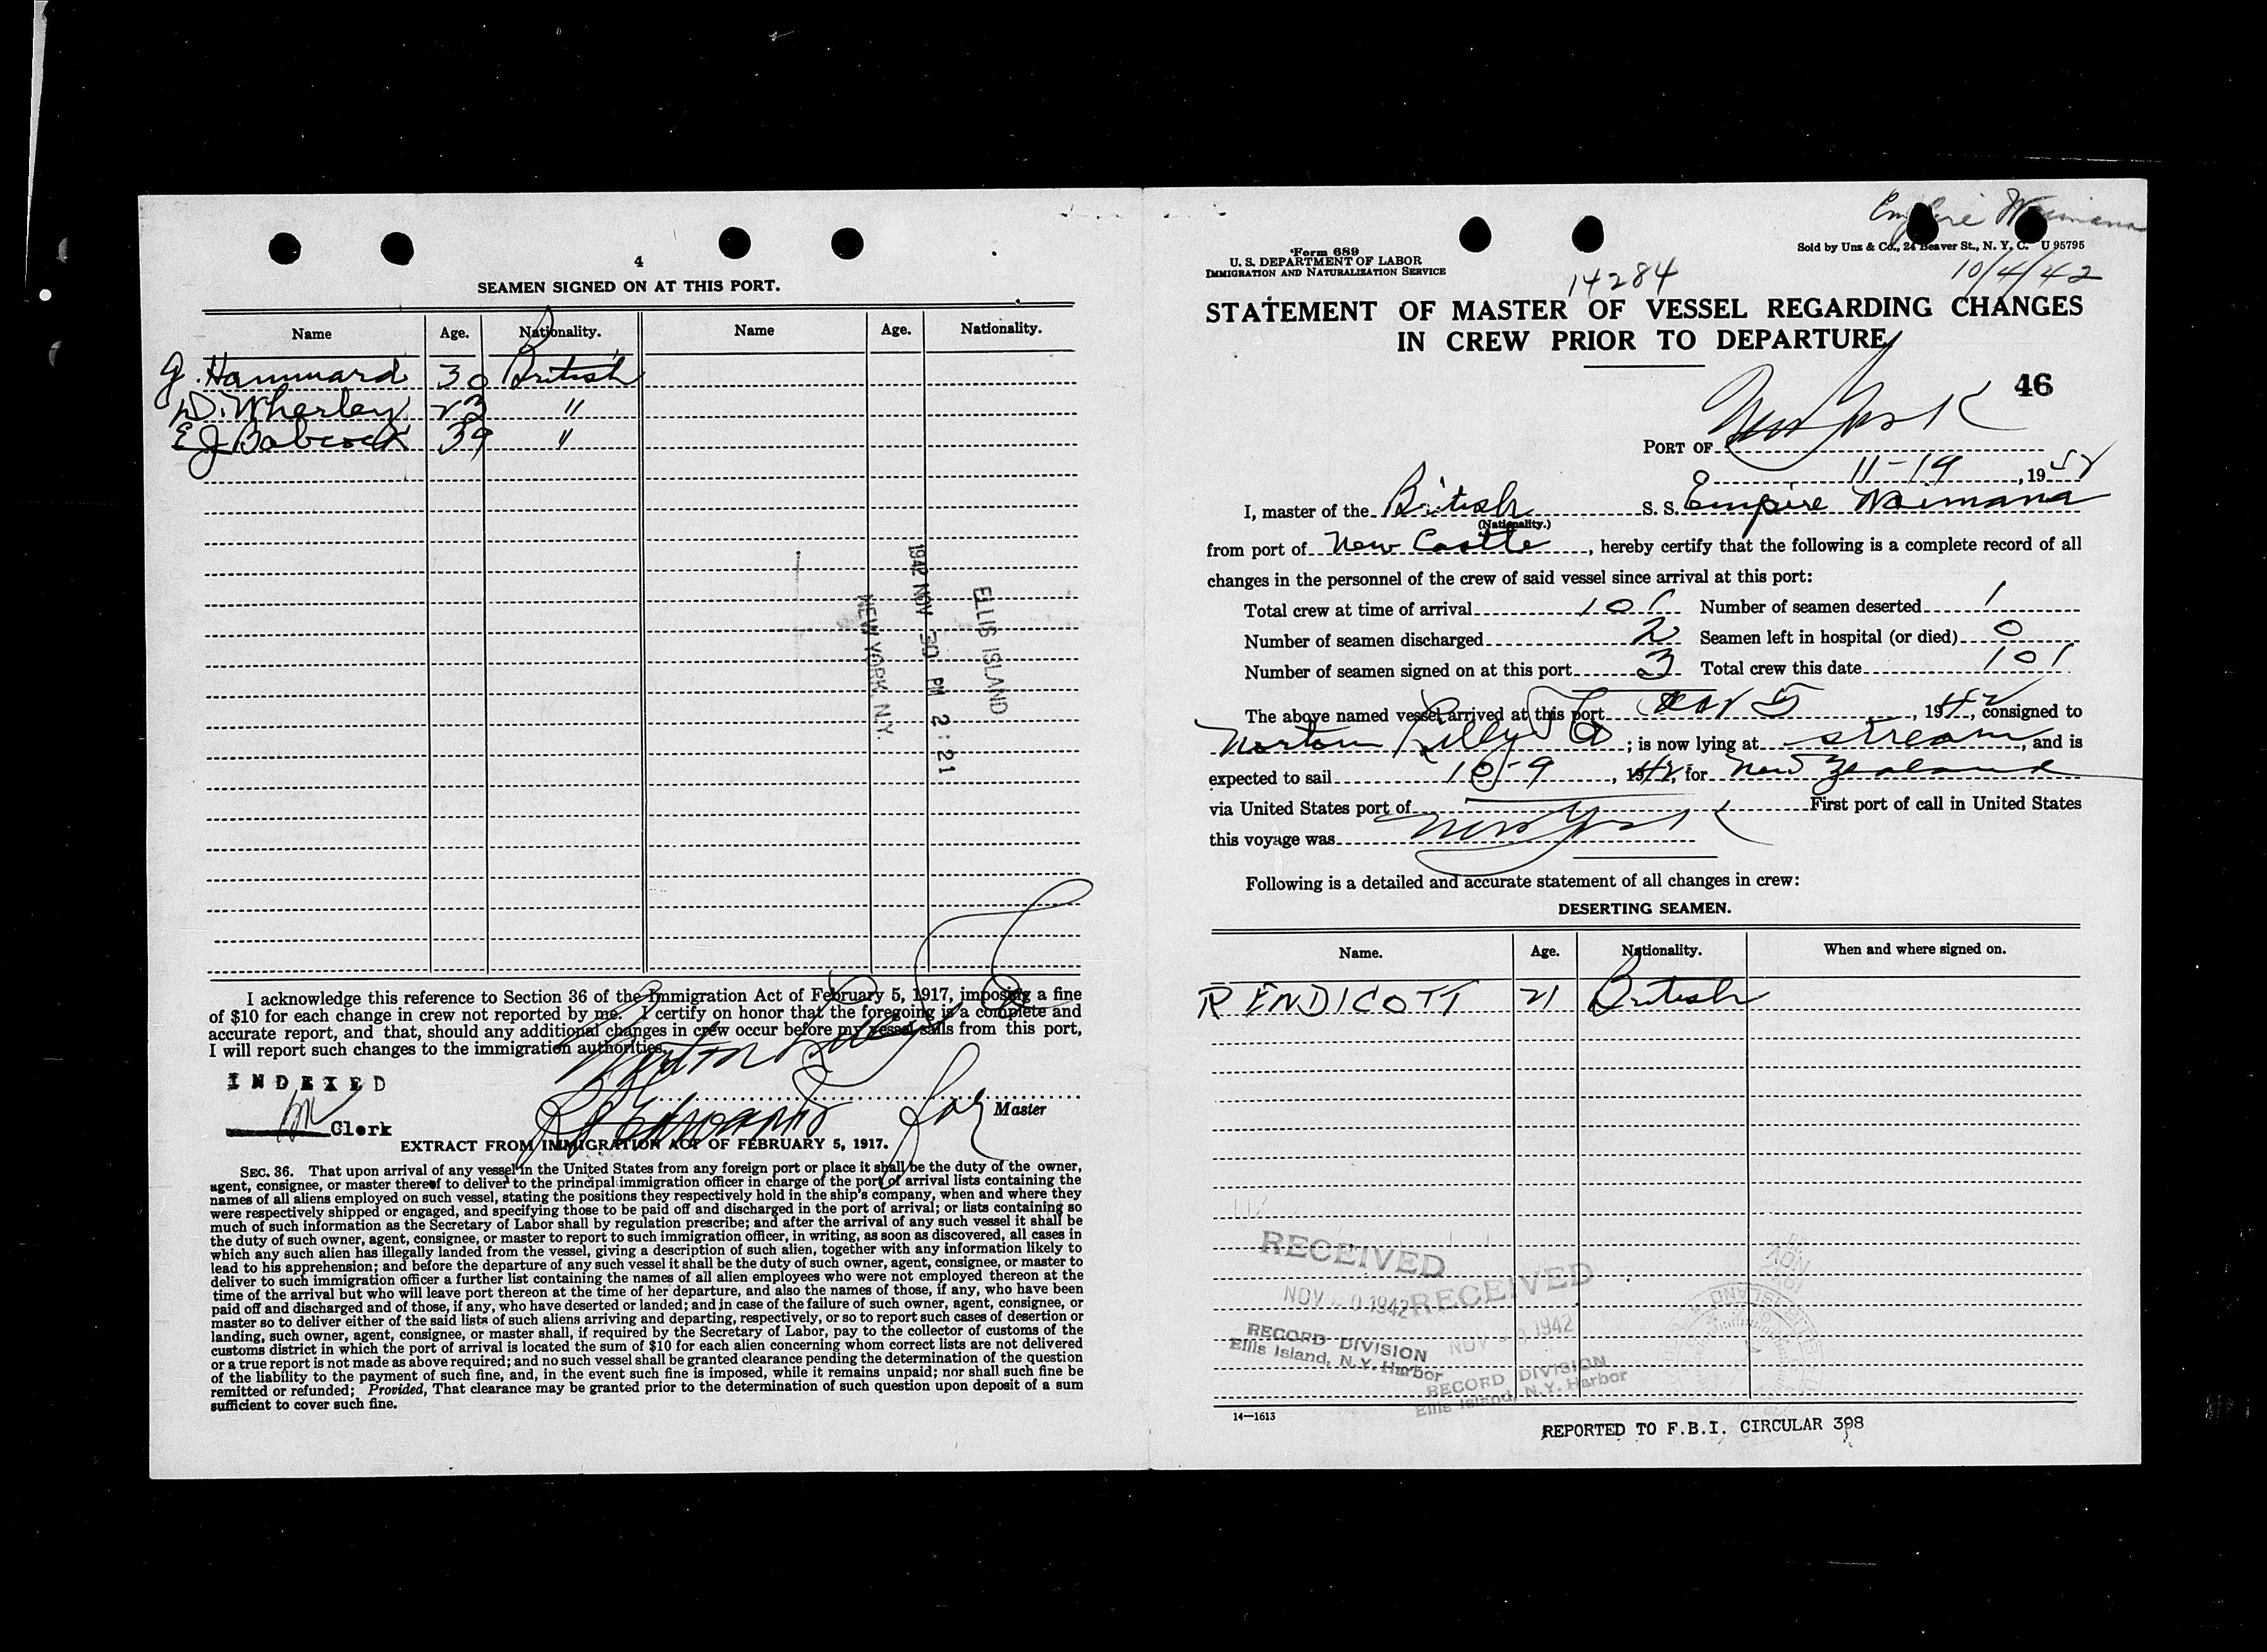 4
SEAMEN SIGNED ON AT THIS PORT.
Name Age. Nationality. Name Age. Nationality.
J. Hammard 30 British
D. Wherley 23 "
E J Babcock 39 "
ELLIS ISLAND
1942 NOV 30 PM 2:21
NEW YORK, N.Y.
I acknowledge this reference to Section 36 of the Immigration Act of February 5, 1917, imposing a fine
of $10 for each change in crew not reported by me. I certify on honor that the foregoing is a complete and
accurate report, and that, should any additional changes in crew occur before my vessel sails from this port,
I will report such changes to the immigration authorities.
INDEXED
Clerk
Norton Lilly Co
for Master
EXTRACT FROM IMMIGRATION ACT OF FEBRUARY 5, 1917.
SEC. 36. That upon arrival of any vessel in the United States from any foreign port or place it shall be the duty of the owner,
agent, consignee, or master thereof to deliver to the principal immigration officer in charge of the port of arrival lists containing the
names of all aliens employed on such vessel, stating the positions they respectively hold in the ship's company, when and where they
were respectively shipped or engaged, and specifying those to be paid off and discharged in the port of arrival; or lists containing so
much of such information as the Secretary of Labor shall by regulation prescribe; and after the arrival of any such vessel it shall be
the duty of such owner, agent, consignee, or master to report to such immigration officer, in writing, as soon as discovered, all cases in
which any such alien has illegally landed from the vessel, giving a description of such alien, together with any information likely to
lead to his apprehension; and before the departure of any such vessel it shall be the duty of such owner, agent, consignee, or master to
deliver to such immigration officer a further list containing the names of all alien employees who were not employed thereon at the
time of the arrival but who will leave port thereon at the time of her departure, and also the names of those, if any, who have been
paid off and discharged and of those, if any, who have deserted or landed; and in case of the failure of such owner, agent, consignee, or
master so to deliver either of the said lists of such aliens arriving and departing, respectively, or so to report such cases of desertion or
landing, such owner, agent, consignee, or master shall, if required by the Secretary of Labor, pay to the collector of customs of the
customs district in which the port of arrival is located the sum of $10 for each alien concerning whom correct lists are not delivered
or a true report is not made as above required; and no such vessel shall be granted clearance pending the determination of the question
of the liability to the payment of such fine, and, in the event such fine is imposed, while it remains unpaid; nor shall such fine be
remitted or refunded; Provided, That clearance may be granted prior to the determination of such question upon deposit of a sum
sufficient to cover such fine.
Empire Waimana
Form 689
U. S. DEPARTMENT OF LABOR
IMMIGRATION AND NATURALIZATION SERVICE
Sold by Unz & Co., 24 Beaver St., N. Y. C. U 95795
14284
10/4/42
STATEMENT OF MASTER OF VESSEL REGARDING CHANGES
IN CREW PRIOR TO DEPARTURE
46
PORT OF New York
11-19, 1942
I, master of the British S. S. Empire Waimana
(Nationality.)
from port of New Castle, hereby certify that the following is a complete record of all
changes in the personnel of the crew of said vessel since arrival at this port:
Total crew at time of arrival 101 Number of seamen deserted 1
Number of seamen discharged 2 Seamen left in hospital (or died) 0
Number of seamen signed on at this port 3 Total crew this date 101
The above named vessel arrived at this port 5, 1942, consigned to
Norton Lilly Co; is now lying at stream, and is
expected to sail 10-9, 1942, for New Zealand
via United States port of First port of call in United States
this voyage was New York
Following is a detailed and accurate statement of all changes in crew:
DESERTING SEAMEN.
Name. Age. Nationality. When and where signed on.
R ENDICOTT 21 British
RECEIVED
NOV 0 1942
RECORD DIVISION
Ellis Island, N.Y. Harbor
RECEIVED
NOV 1942
RECORD DIVISION
Ellis Island, N.Y. Harbor
14—1613
REPORTED TO F.B.I. CIRCULAR 398